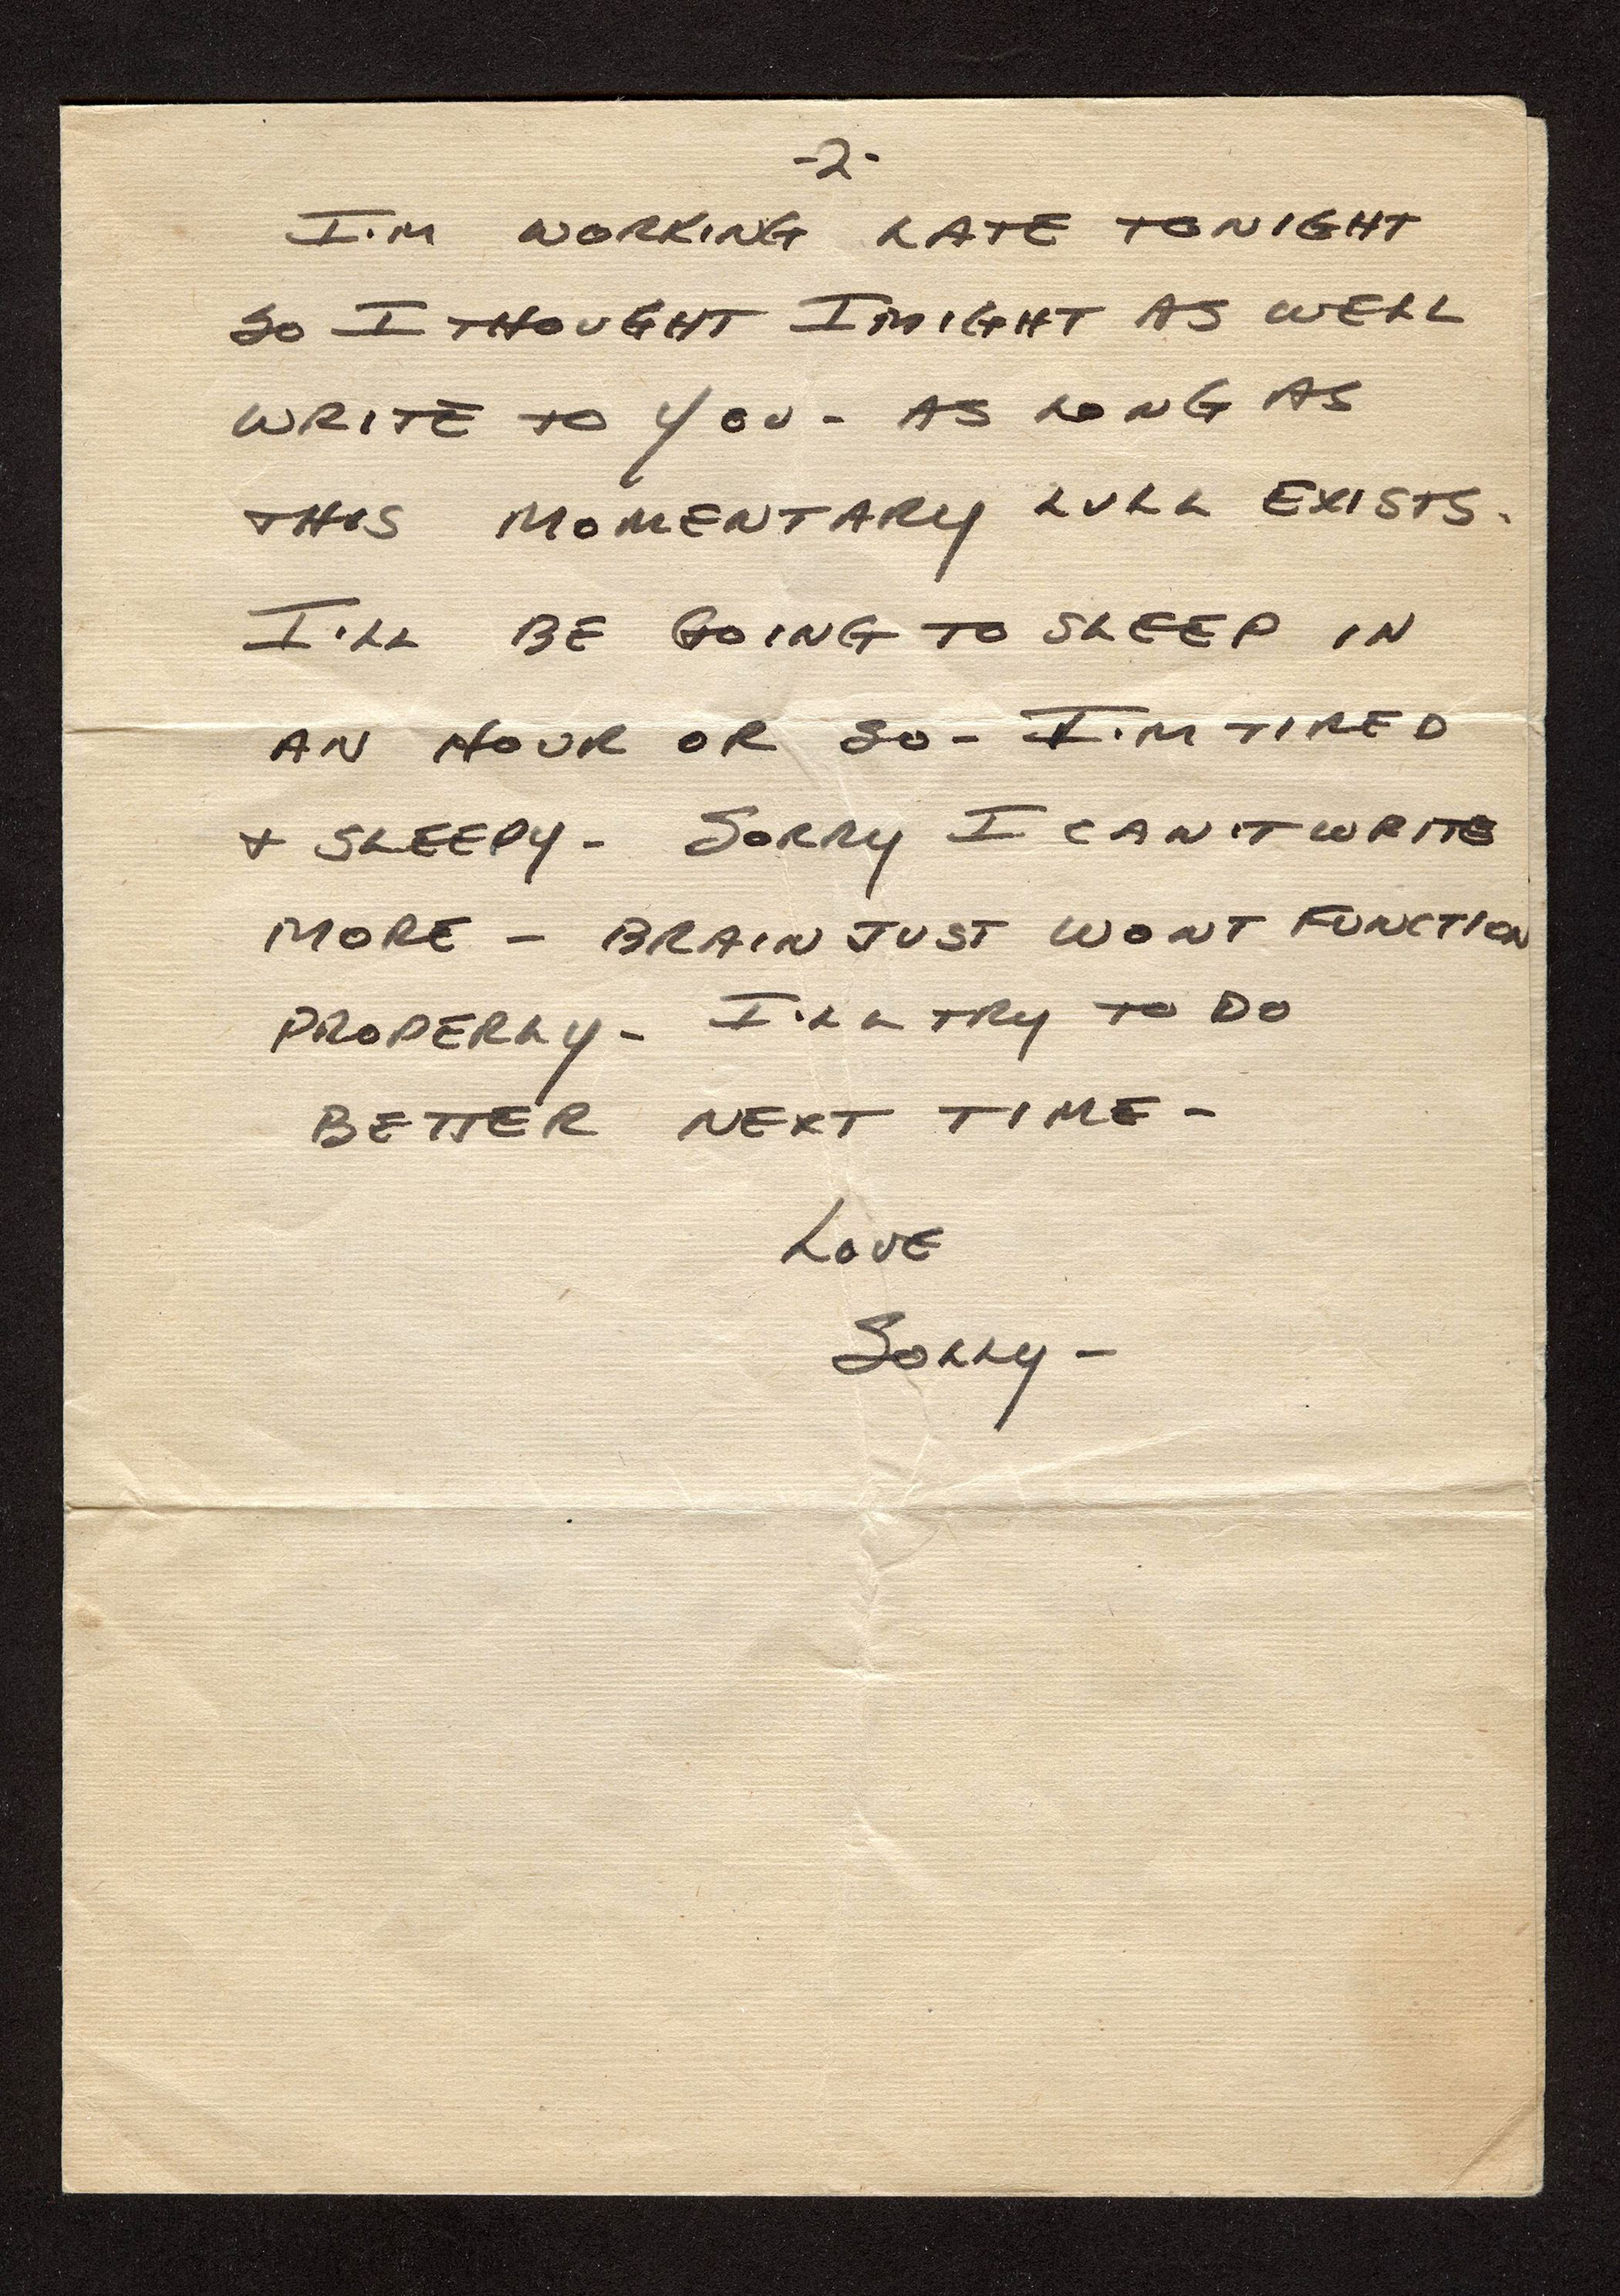 -2-
I'M WORKING LATE TONIGHT
SO I THOUGHT I MIGHT AS WELL
WRITE TO YOU - AS LONG AS
THIS MOMENTARY LULL EXISTS.
I'LL BE GOING TO SLEEP IN
AN HOUR OR SO - I'M TIRED
+ SLEEPY - SORRY I CAN'T WRITE
MORE - BRAIN JUST WONT FUNCTION
PROPERLY - I'LL TRY TO DO
BETTER NEXT TIME -
LOVE
SOLLY -